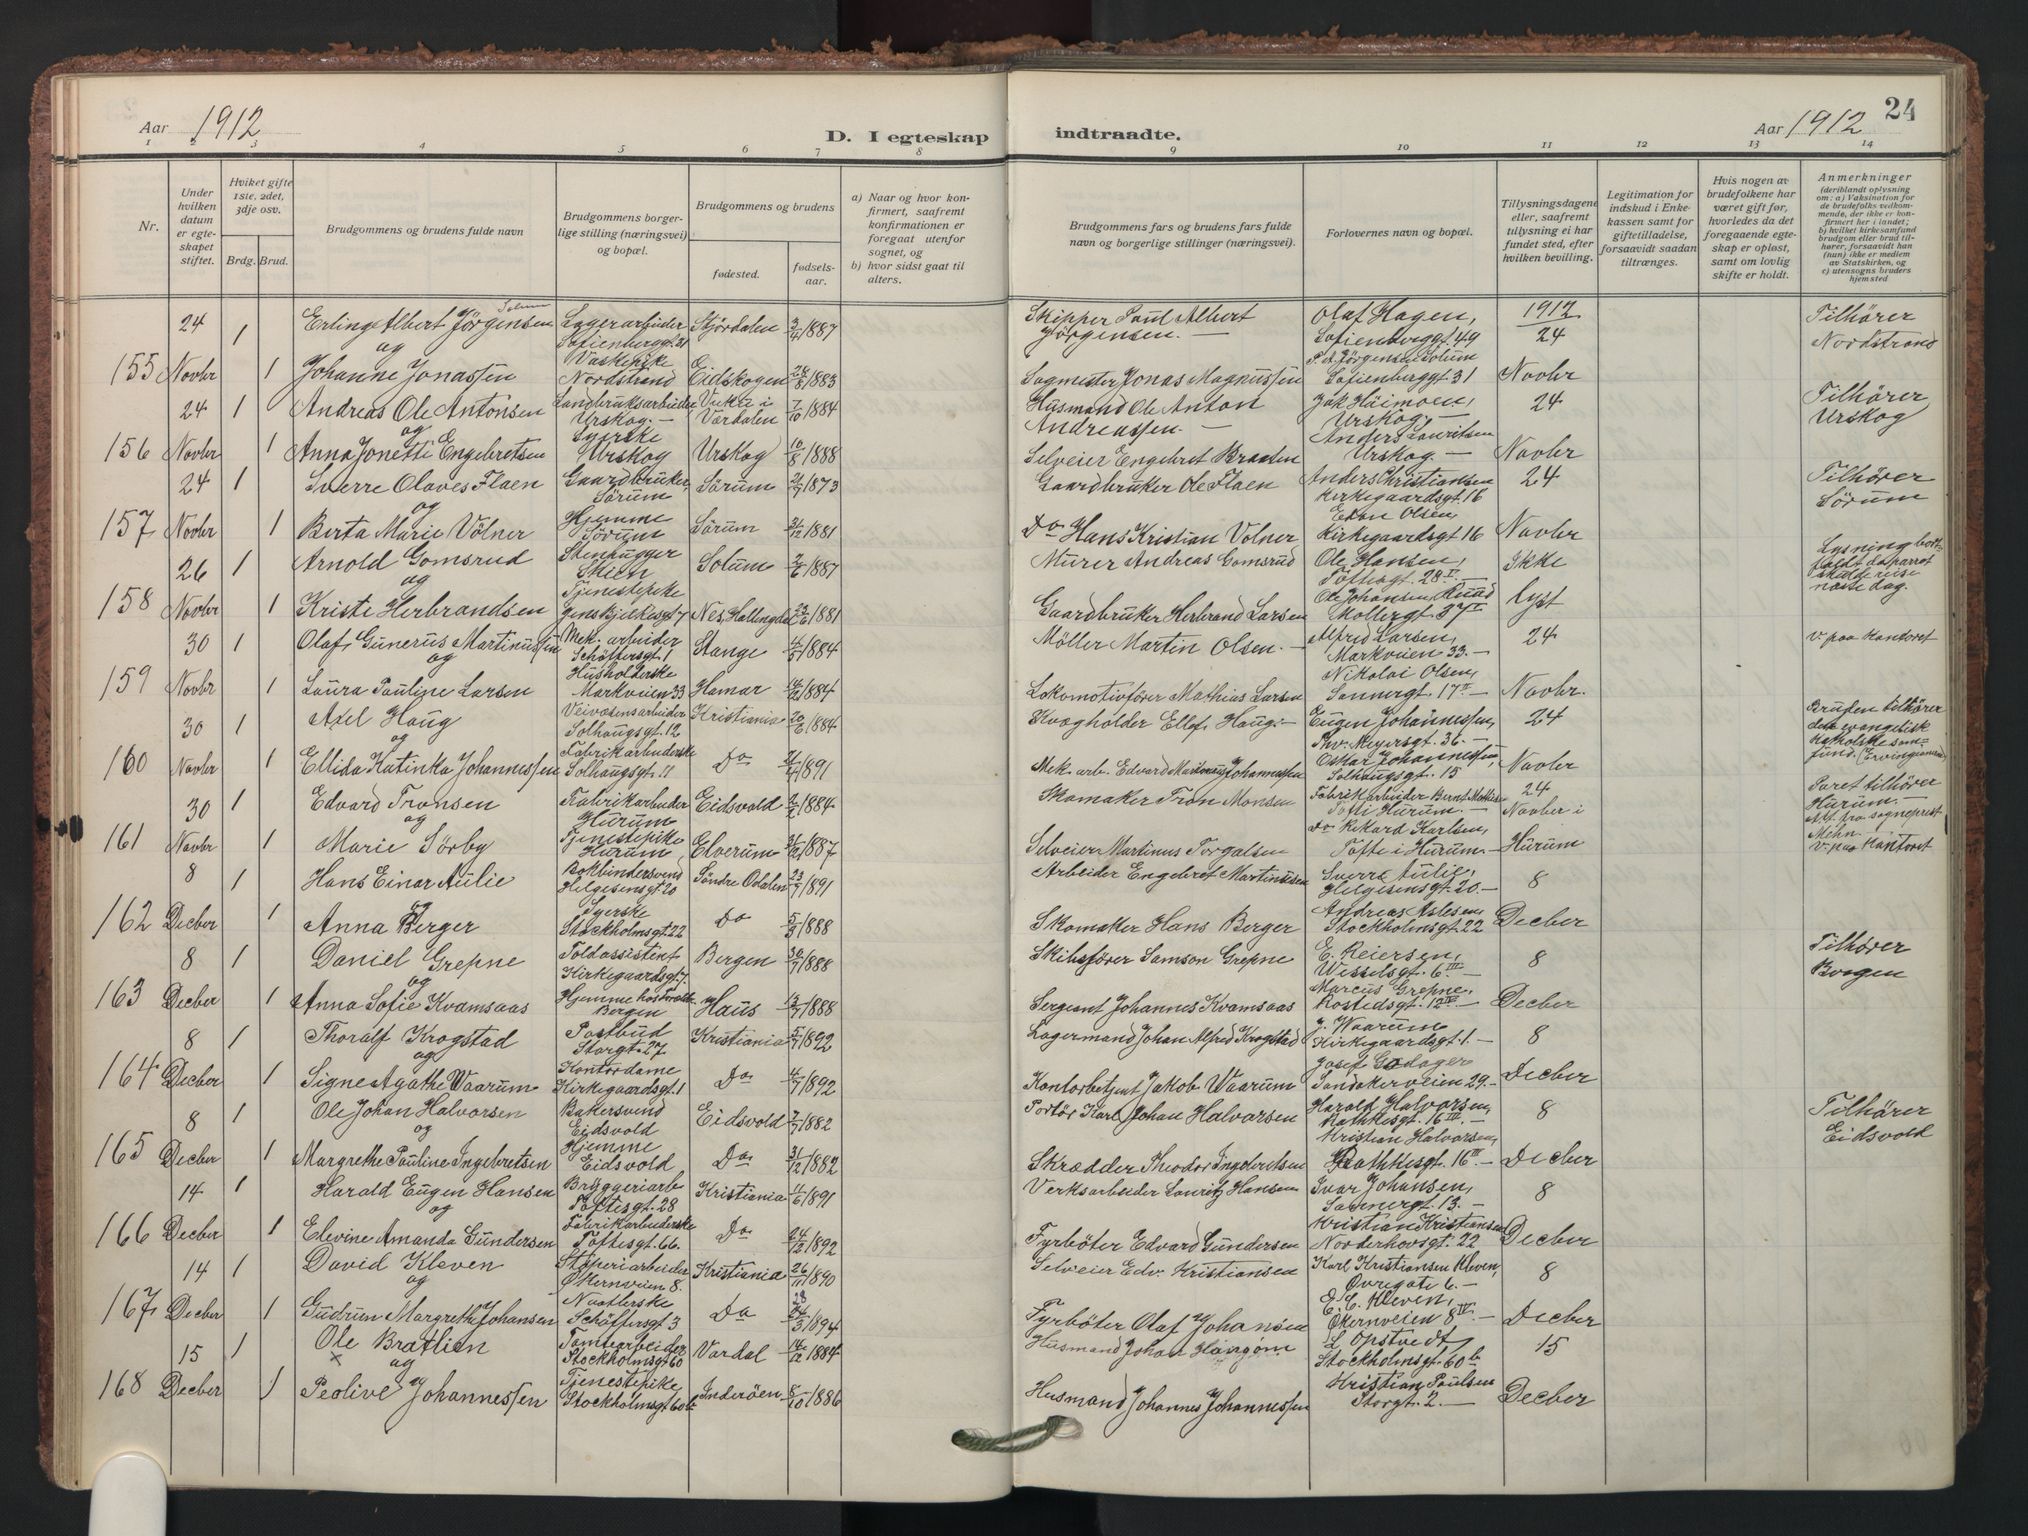 Aar 1912
D. I egteskap
indtraadte.
Aar 1912
24
1 2 3 4 5 6 7 8 9 10 11 12 13 14
Nr.
Under hvilken datum er egteskapet stiftet.
Hviket gifte 1ste, 2det, 3dje osv.
Brdg. Brud.
Brudgommens og brudens fulde navn
Brudgommens borgerlige stilling (næringsvei) og bopæl.
Brudgommens og brudens
fødested.
fødselsaar.
a) Naar og hvor konfirmert, saafremt konfirmationen er foregaat utenfor sognet, og
b) hvor sidst gaat til alters.
Brudgommens fars og brudens fars fulde navn og borgerlige stillinger (næringsvei).
Forlovernes navn og bopæl.
Tillysningsdagene eller, saafremt tillysning ei har fundet sted, efter hvilken bevilling.
Legitimation for indskud i Enkekassen samt for giftetilladelse, forsaavidt saadan tiltrænges.
Hvis nogen av brudefolkene har været gift før, hvorledes da det foregaaende egteskap er opløst, samt om lovlig skifte er holdt.
Anmerkninger (deriblandt oplysning om: a) Vaksination for de brudefolks vedkommende, der ikke er konfirmert her i landet; b) hvilket kirkesamfund brudgom eller brud tilhører, forsaavidt han (hun) ikke er medlem av Statskirken, og c) utensogns bruders hjemsted
24 1 Erling Albert Jörgensen Solum Lagerarbeider Sofienberggt. 31 Stjördalen 3/4 1887 Skipper Paul Albert Jörgensen. Olaf Hagen, Sofienberggt. 49 1912 24 Tilhörer Nordstrand
og
155 Novbr 1 Johanne Jonassen Vaskepike Nordstrand Eidskogen 24/8 1883 Sagmester Jonas Magnussen P. A. Jörgensen Solum Sofienberggt 31 Novbr
24 1 Andreas Ole Antonsen Landbruksarbeider Urskog. Vuku i Værdalen 7/10 1884 Husmand Ole Anton Andreassen. Jak Höimoen, Urskog. 24 Tilhörer Urskog
og
156 Novbr 1 Anna Jonette Engebretsen Syerske Urskog Urskog 10/8 1888 Selveier Engebret Braaten Anders Lauritsen Urskog. Novbr
24 1 Sverre Olaves Flaen Gaardbruker, Sörum Sörum 21/7 1873 Gaardbruker Ole Flaen Anders Christiansen Kirkegaardsgt 16 24 Tilhörer Sörum
og
157 Novbr 1 Berta Marie Völner Hjemme Sörum Sörum 31/12 1881 Do Hans Kristian Volner Olsen, Kirkegaardsgt 16 Novbr
26 1 Arnold Gomsrud Stenhugger Skien Solum 2/6 1887 Murer Andreas Gomsrud Ole Hansen, Toftesgt. 28 II Ikke Lysning bortfaldt da parret skulde reise næste dag.
og
158 Novbr 1 Kristi Herbrandsen Tjenestepike Jens Bjelkesgt 7 Nes, Hallingdal 23/6 1881 Gaardbruker Herbrand Larsen Ole Johansen Ruud Holbergt 37 II lyst
30 1 Olaf Gunerus Martinussen Mek. arbeider Schöttersgt. 1 Stange 4/5 1884 Möller Martin Olsen. Alfred Larsen, Markveien 33. 24 v. paa Kontoret
og
159 Novbr 1 Laura Pauline Larsen Husholderske Markveien 33 Hamar 14/12 1884 Lokomotivförer Mathias Larsen Nikolai Olsen, Sannergt. 17 II Novbr.
30 1 Axel Haug Veivæsensarbeider Solhaugsgt. 12 Kristiania 20/6 1884 Kvægholder Ellef Haug. Eugen Johannessen, Thv. Meyersgt. 36. 24 Bruden tilhörer
og
160 Novbr 1 Ellida Katinka Johannessen Fabrikarbeiderske Solhaugsgt. 11 Do 1891 Mek. arb. Edvard Johannessen Oskar Johannessen, Solhaugsgt. 15 Novbr
30 1 Edvard Tronsen Fabrikarbeider Hurum Eidsvold 2/2 1884 Skomaker Tron Monsen Fabrikarbeider Bernt Tofte Hurum. 24 Novbr i Paret tilhörer Hurum. att. fra sogneprest Mehn. v. paa Kontoret
og
161 Novbr 1 Marie Sörby Tjenestepike Hurum Elverum 31/12 1887 Selveier Martinus Torgalsen Do Rikard Karlsen, Tofte i Hurum. Hurum
8 1 Hans Einar Aulie Bokbindersvend Helgesensgt. 20 Söndre Odalen 23/7 1891 Arbeider Engebret Martinsen Sverre Aulie, Helgesensgt. 20. 8
og
162 Decber 1 Anna Berger Syerske Stockholmsgt. 22 Do 5/9 1888 Skomaker Hans Berger Andreas Aslesen, Stockholmsgt. 22 Decber
8 1 Daniel Grepne Toldassistent Kirkegaardsgt. 7. Bergen 30/7 1888 Skibsförer Samson Grepne E. Reiersen, Wesselsgt. 6 III 8 Tilhörer Bergen
og
163 Decber 1 Anna Sofie Kvamsaas Hjemme hos Bergen Haus 13/7 1888 Sergeant Johannes Kvamsaas Marcus Grepne, Rostedsgt. 12 IV Decber
8 1 Thoralf Krogstad Postbud Storgt. 27 Kristiania 5/7 1892 Lagermand Johan Alfred Krogstad J. Waarum Kirkegaardsgt. 1. 8
og
164 Decber 1 Signe Agathe Waarum Kontordame Kirkegaardsgt. 1 Do 4/7 1892 Kontorbetjent Jakob Waarum Josef Godager Sandakerveien 29. Decber
8 1 Ole Johan Halvorsen Bakersvend Eidsvold Eidsvold 7/7 1882 Portör Karl Johan Halvorsen Harald Halvorsen, Rathkesgt. 16 III. 8 Tilhörer Eidsvold
og
165 Decber 1 Margrethe Pauline Ingebretsen Hjemme Eidsvold Do 31/12 1882 Skrædder Theodor Ingebretsen Kristian Halvorsen, Rathkesgt. 16 III. Decber
14 1 Harald Eugen Hansen Bryggeriarb Toftesgt. 28 Kristiania 11/6 1891 Verksarbeider Lauritz Hansen Ivar Johansen, Sannergt. 13. 8
og
166 Decber 1 Elevine Amanda Gundersen Fabrikarbeiderske Toftesgt. 66. Do 24/12 1892 Fyrböter Edvard Gundersen Kristian Kristiansen Norderhovsgt. 22 Decber
14 1 David Kleven Stöperiarbeider Ökernveien 8. Kristiania 26/11 1890 Selveier Edv. Kristiansen Karl Kristiansen Kleven, Övregate 6. 8
og
167 Decber 1 Gudrun Margrethe Johansen Schöttersgt 3 Do 23 24/3 1894 Fyrböter Olaf Johansen E. C. Kleven, Ökernveien 8 IV. Decber
15 1 Ole Bratlien Tomtearbeider Stockholmsgt. 60 Vardal 14/12 1884 Husmand Johan L. Opstvedt, Stockholmsgt. 60 b 15
x og
168 Decber 1 Peolive Johannessen Tjenestepike Stockholmsgt 60 b Inderöen 8/10 1886 Husmand Johannes Johannessen Kristian Paulsen Storgt. 2. Decber